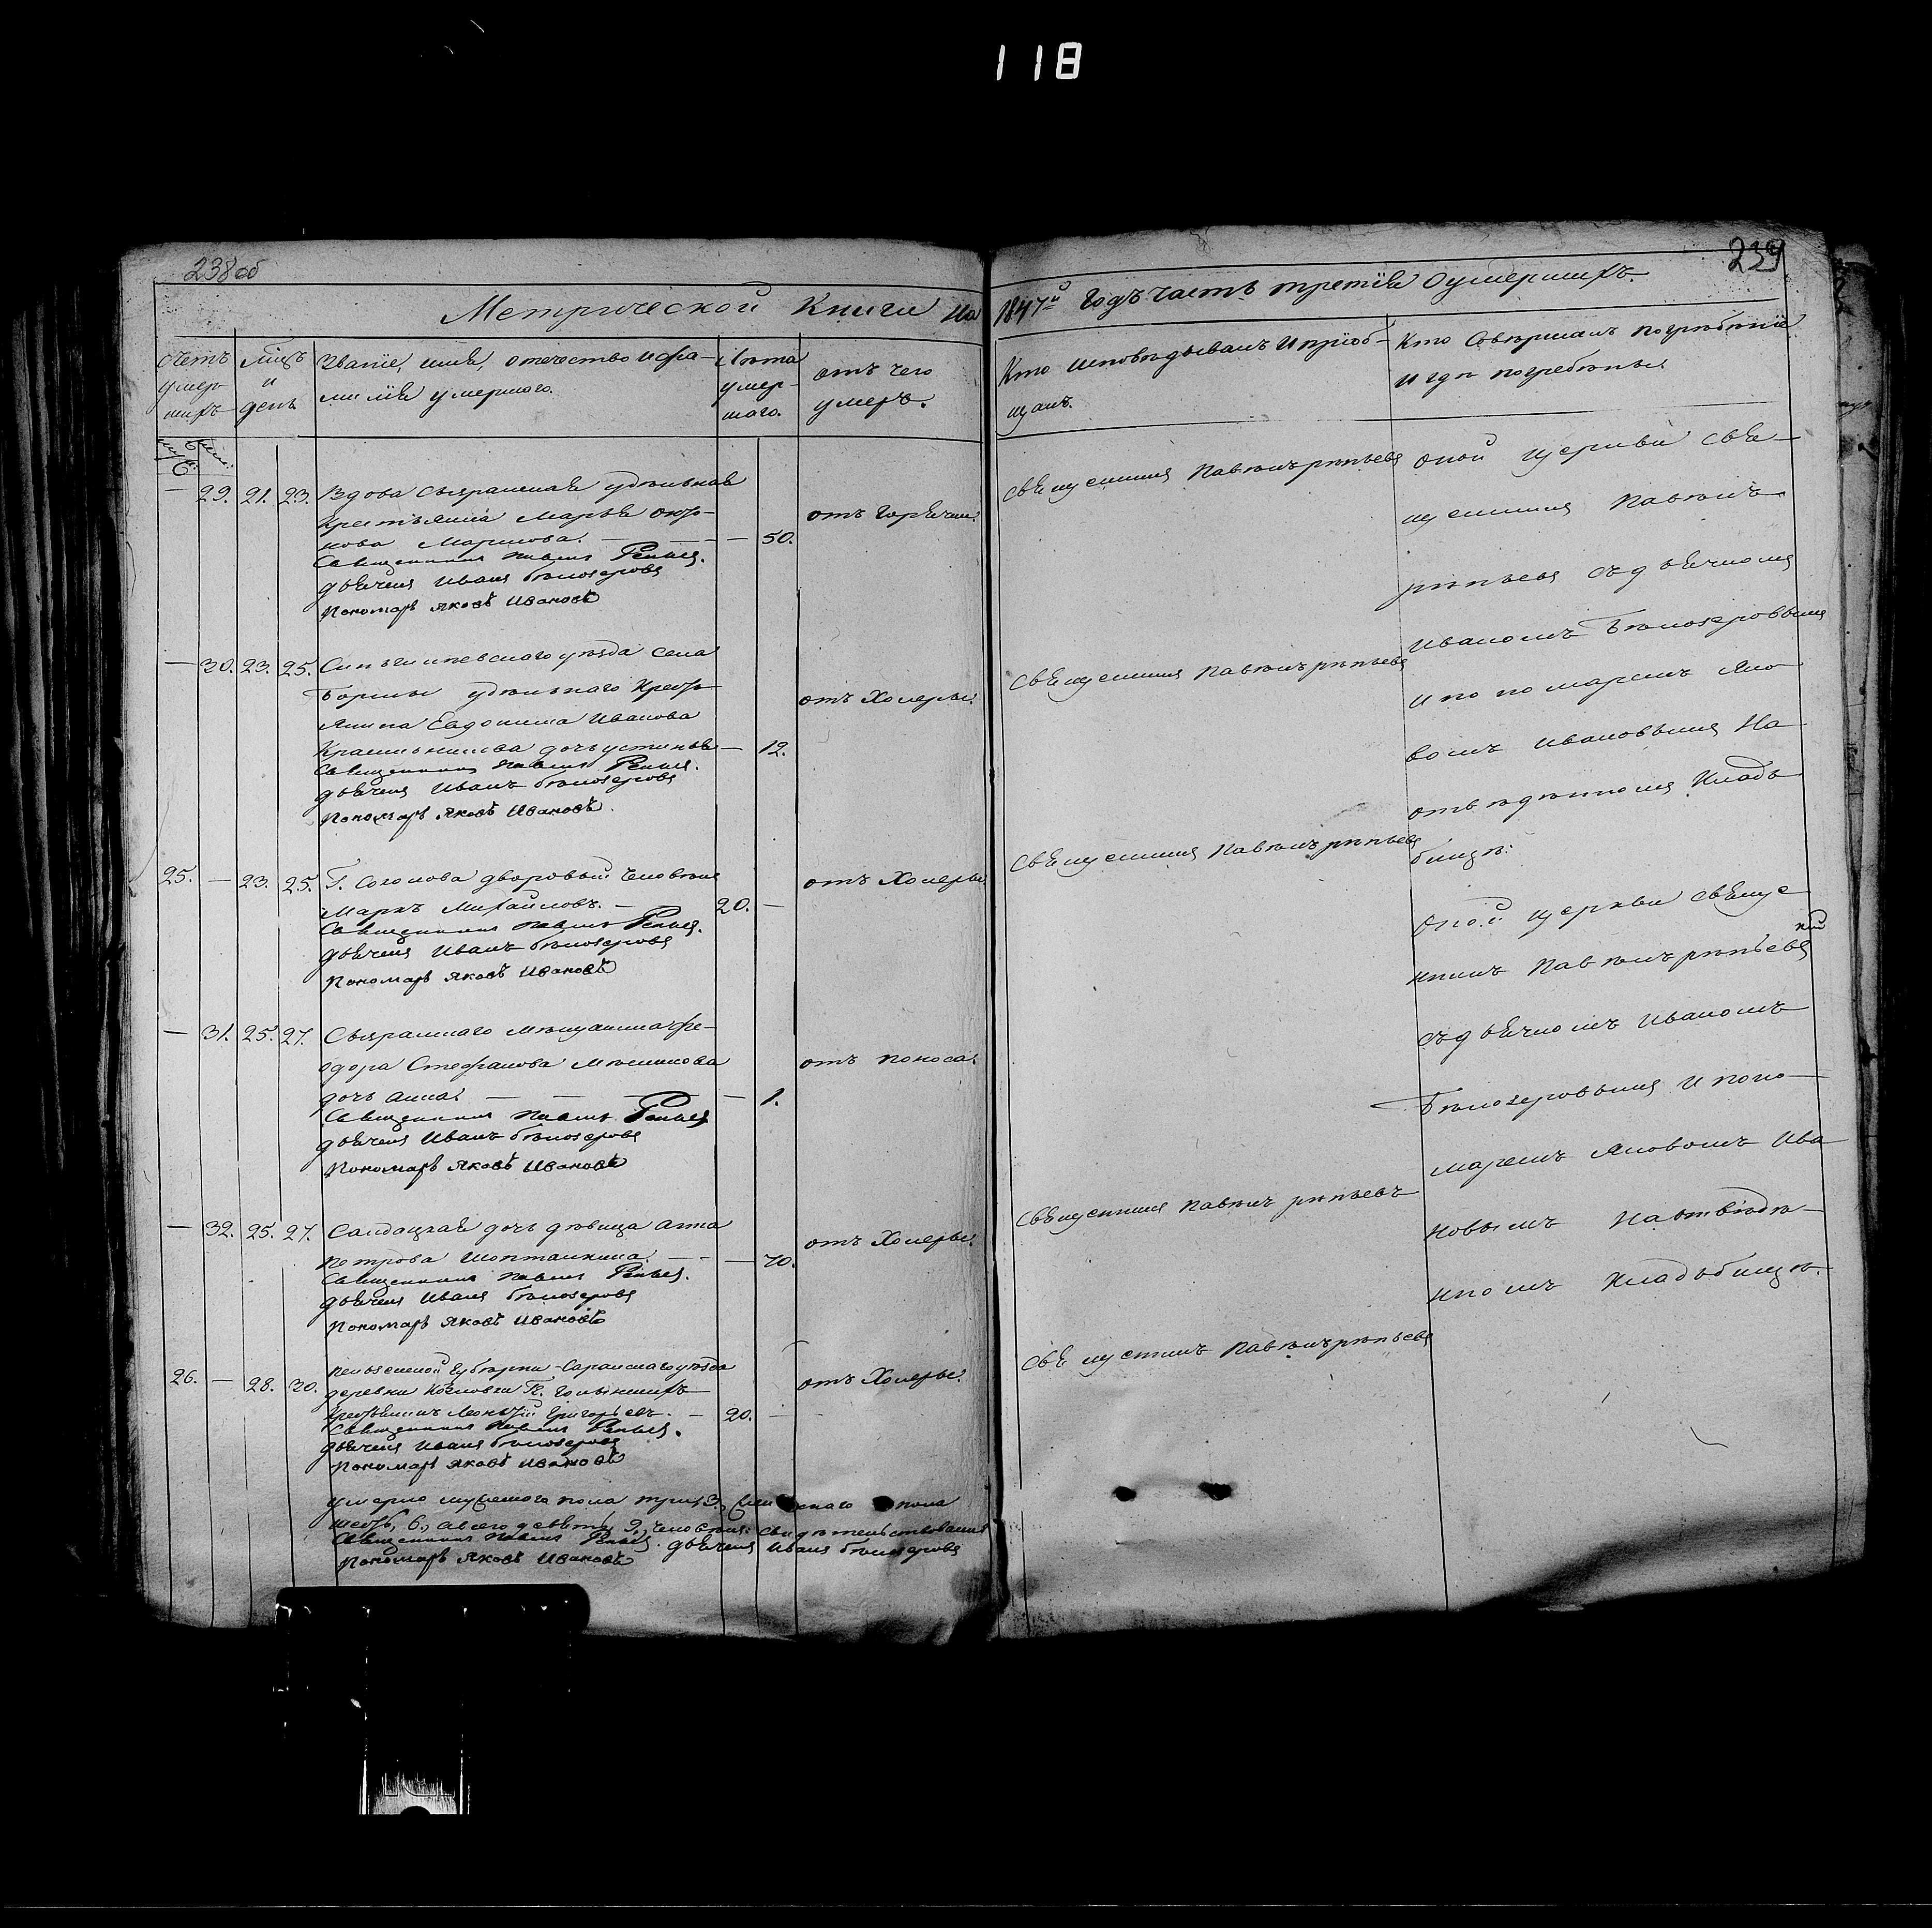 118
238об
239
Метрической Книги на 1847й Годъ часть третія о умершихъ.
Счетъ умер- шихъ
Мцъ и день
Званіе, имя, отечество и фа-
милія умершаго.
Лѣта умер- шаго.
отъ чего умеръ.
Кто исповѣдывалъ и пріоб-
щалъ.
Кто Совершалъ погребеніе
и гдѣ погребены
29. 21. 23. Вдова Сызранская удѣльная
крестьянка Марья
Маркова. — 50.
отъ горячки.
Священникъ Павелъ
дьячекъ Иванъ Бѣлозеровъ
Пономарь Яковъ Ивановъ
— 30. 23. 25. уѣзда села
удѣльнаго кресть-
янина Евдокима Иванова
дочь Устинья — 12.
отъ Холеры.
Священникъ Павелъ
дьячекъ Иванъ Бѣлозеровъ
Пономарь Яковъ Ивановъ.
25. — 23. 25. Г. Соколова дворовый человѣкъ
Маркъ Михайловъ. — 20. —
отъ Холеры
Священникъ Павелъ
дьячекъ Иванъ Бѣлозеровъ
Пономарь Яковъ Ивановъ
— 31. 25. 27. Сызранскаго мѣщанина Фе-
одора Стефанова Мясникова
дочь Анна — 1.
отъ поноса.
Священникъ Павелъ
дьячекъ Иванъ Бѣлозеровъ
Пономарь Яковъ Ивановъ
— 32. 25. 27. Салдацкая дочь дѣвица Анна
Петрова — 70.
отъ Холеры.
Священникъ Павелъ
дьячекъ Иванъ Бѣлозеровъ
Пономарь Яковъ Ивановъ
26. — 28. 30. Пензенской Губерни Саранскаго уѣзда
деревни Козловки Гг.
Григорьевъ. — 20. —
отъ Холеры.
Священникъ Павелъ
дьячекъ Иванъ Бѣлозеровъ
Пономарь Яковъ Ивановъ
умерло мужескаго пола три, 3., женскаго пола
шесть, 6., а всего девять, 9., человѣкъ.
Священникъ Павелъ дьячекъ Иванъ Бѣлозеровъ
Пономарь Яковъ Ивановъ
Свящсенникъ Павелъ Рѣпьевъ
Священникъ Павелъ Рѣпьевъ
Священникъ Павелъ Рѣпьевъ
Священникъ Павелъ Рѣпьевъ
Священникъ Павелъ Рѣпьевъ
оной церкви свя-
щенникъ Павелъ
Рѣпьевъ съ дьячкомъ
Иваномъ Бѣлозеровымъ
и пономаремъ Яко-
вомъ Ивановымъ На
отведенномъ Кладъ-
бищѣ.
оной церкви священ-
никъ Павелъ Рѣпьевъ
съ дьячкомъ Иваномъ
Бѣлозеровымъ и поно-
маремъ Яковомъ Ива-
новымъ На отведе-
нномъ Кладъбищѣ.